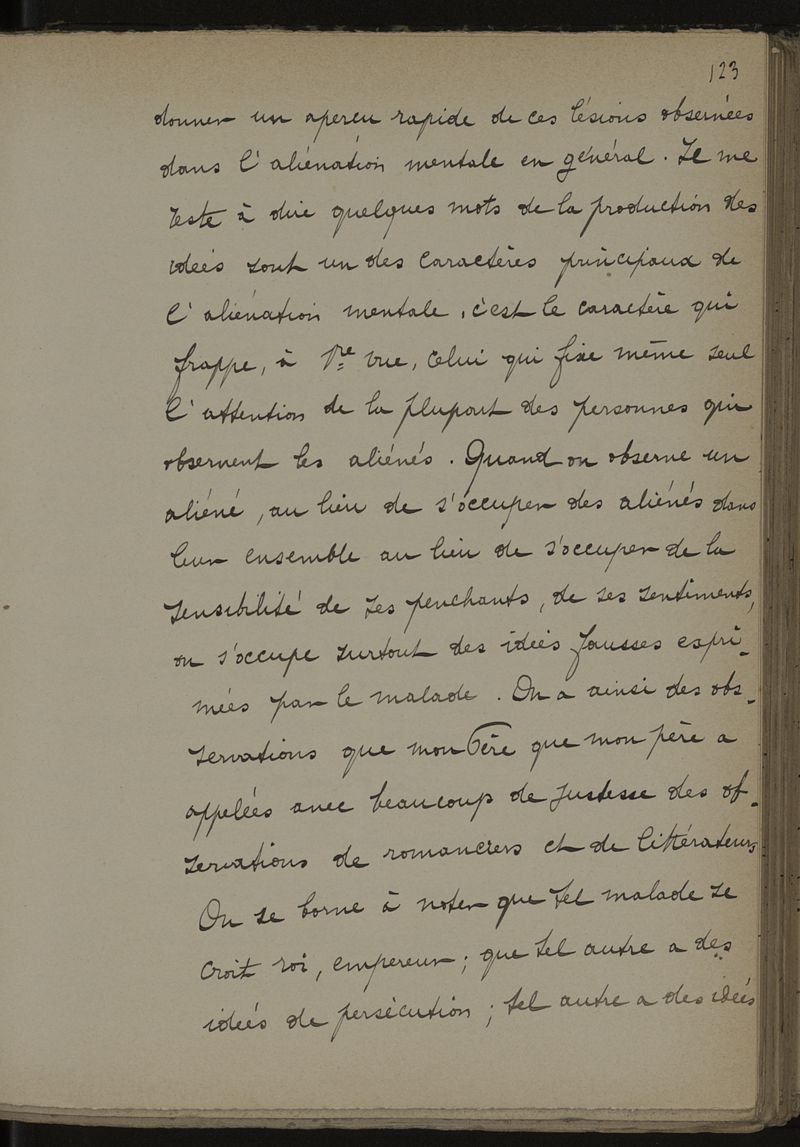 123
donner un aperçu rapide de ces lésions observées
dans l'aliénation mentale en général. Il me
reste à dire quelques mots de la production des
idées sont un des caractères principaux de
l'aliénation mentale, c'est le caractère qui
frappe, à 1re vue, celui qui fixe même seul
l'attention de la plupart des personnes qui
observent les aliénés. Quand on observe un
aliéné, au lieu de s'occuper des aliénés dans
leur ensemble au lieu de s'occuper de la
sensibilité de ses penchants, de ses sentiments,
on s'occupe surtout des idées fausses expri-
mées par le malade. On a ainsi des obs-
servations que mon Père que mon père a
appelées avec beaucoup de justesse des ob-
servations de romanciers et de littérateurs
On se borne à noter que tel malade se
croit roi, empereur; que tel autre a des
idées de persécution; tel autre a des idées